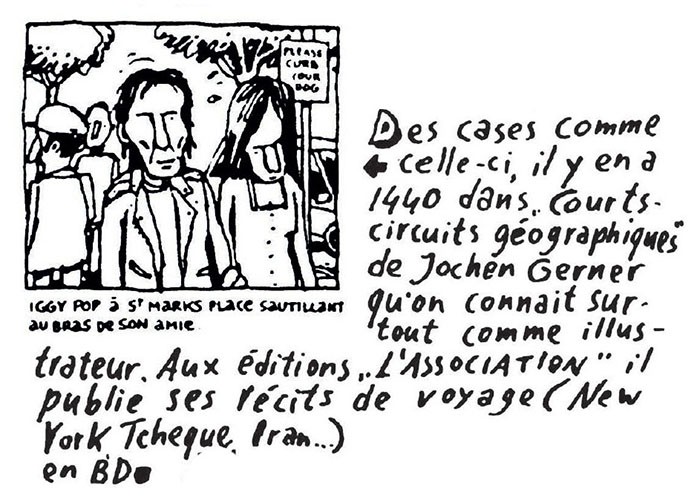 PLEASE
CURB
YOUR
DOG
IGGY POP à St MARKS PLACE SAUTILLANT
AU BRAS DE SON AMIE.
Des cases comme
celle-ci, il y en a
1440 dans „Courts-
circuits géographiques"
de Jochen Gerner
qu'on connait sur-
tout comme illus-
trateur. Aux éditions „L'ASSOCIATION" il
publie ses récits de voyage (New
York, Tcheque, Iran...)
en BD